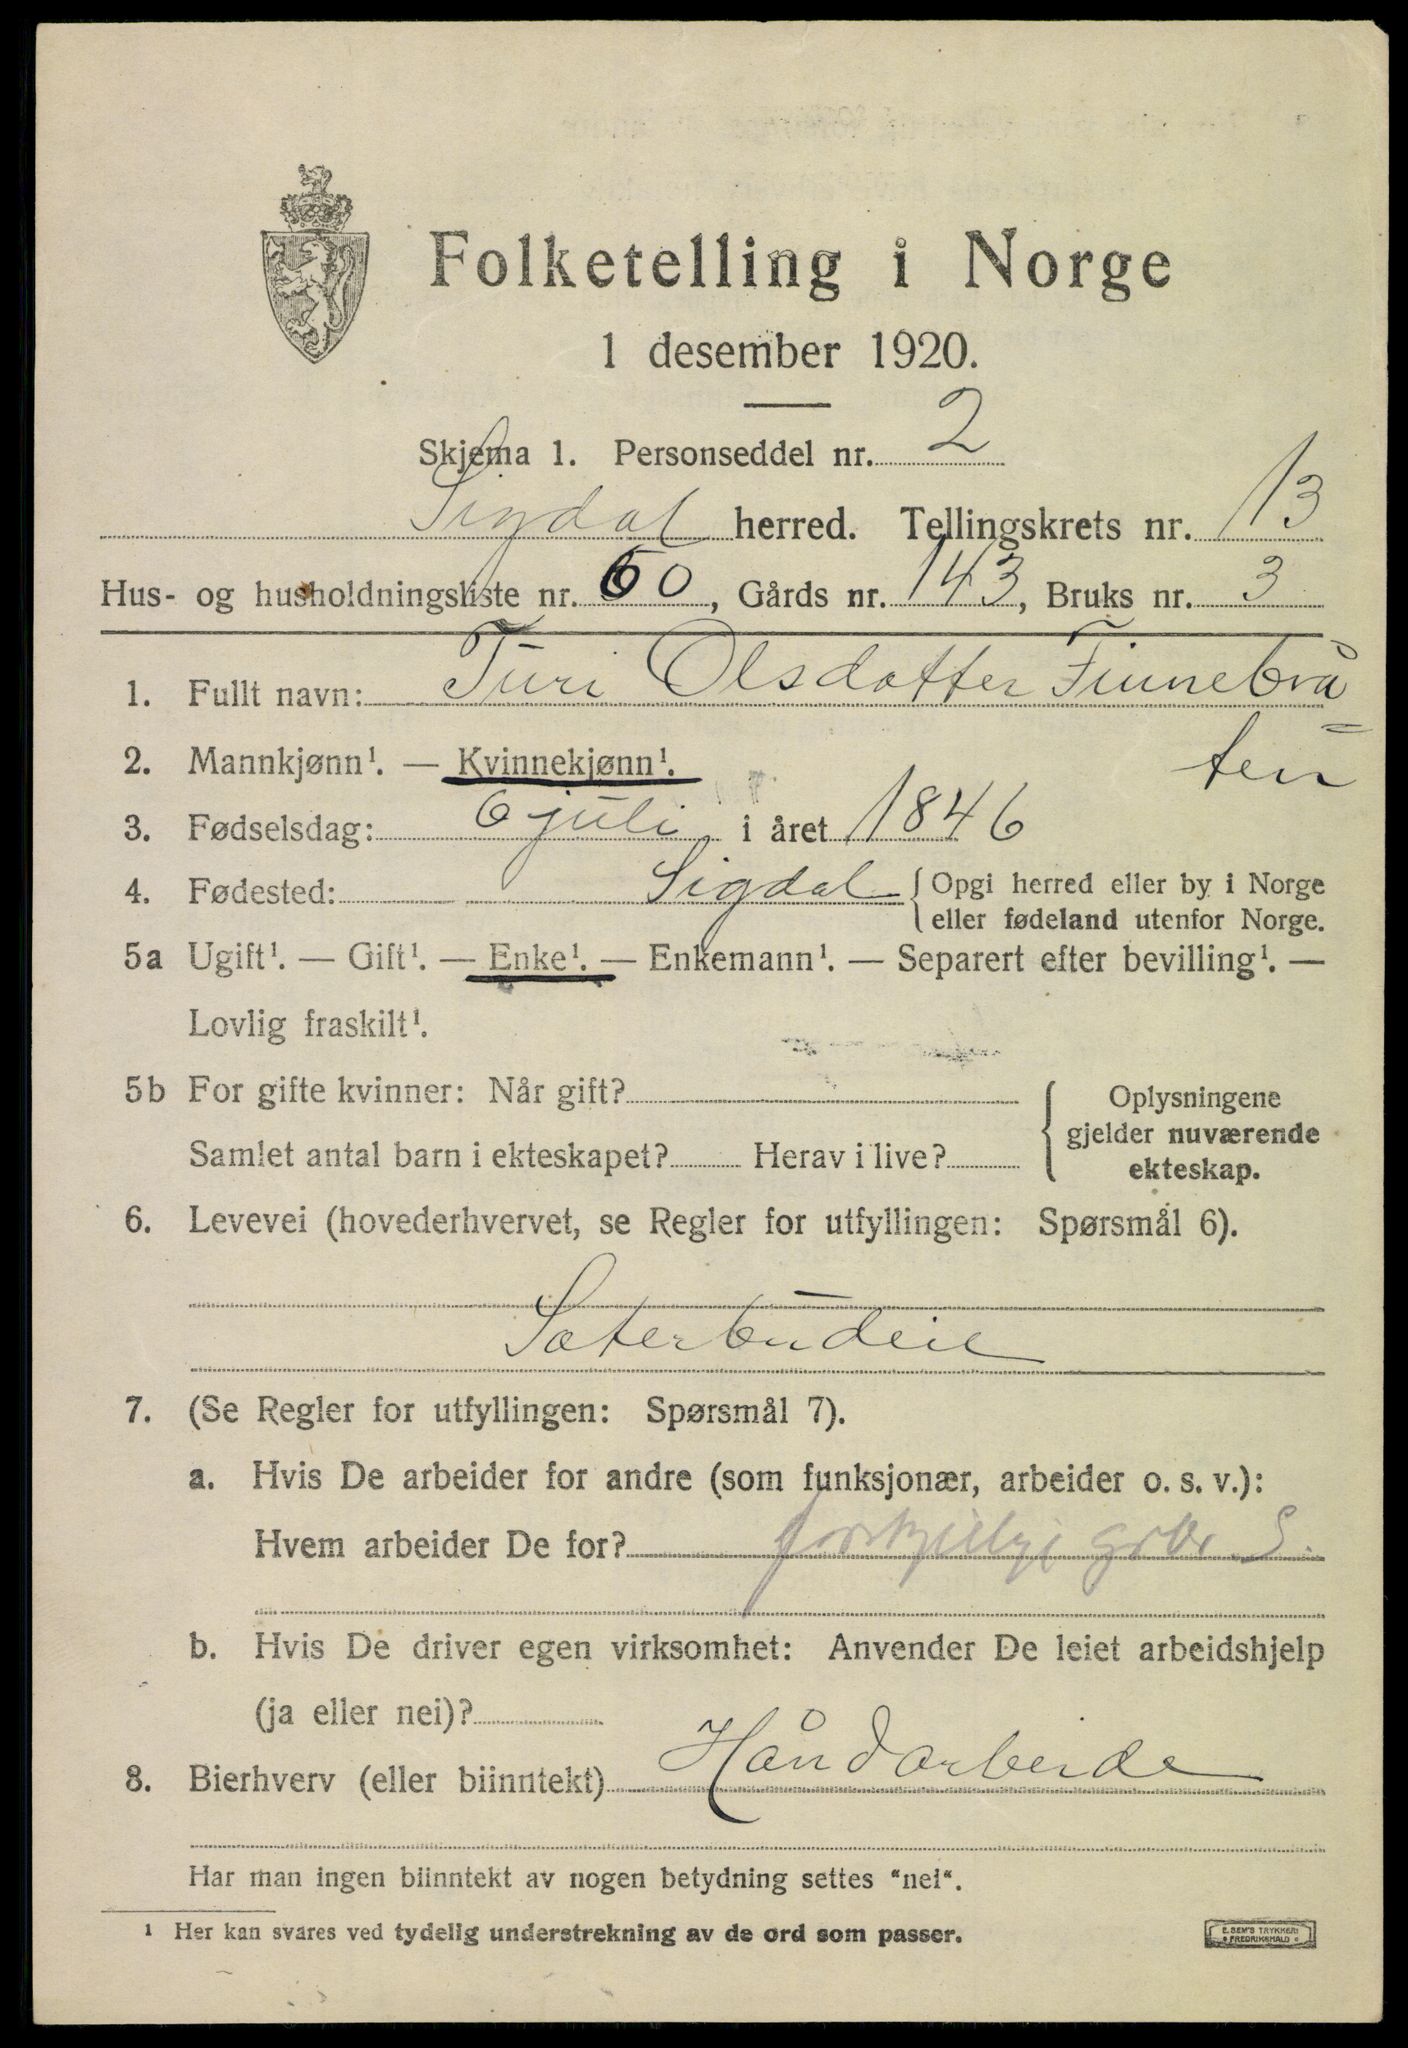 Folketelling i Norge
1 desember 1920.
Skjema 1. Personseddel nr. 2
Sigdal herred. Tellingskrets nr. 13
Hus- og husholdningsliste nr. 60, Gårds nr. 143, Bruks nr. 3
1. Fullt navn: Turi Olsdatter Finnebrå=
ten
2. Mannkjønn¹. — Kvinnekjønn¹.
3. Fødselsdag: 6 juli i året 1846
4. Fødested: Sigdal { Opgi herred eller by i Norge
eller fødeland utenfor Norge.
5a Ugift¹. — Gift¹. — Enke¹. — Enkemann¹. — Separert efter bevilling¹. —
Lovlig fraskilt¹.
5b For gifte kvinner: Når gift?
Samlet antal barn i ekteskapet? Herav i live?
Oplysningene
gjelder nuværende
ekteskap.
6. Levevei (hovederhvervet, se Regler for utfyllingen: Spørsmål 6).
Sæterbudeie
7. (Se Regler for utfyllingen: Spørsmål 7).
a. Hvis De arbeider for andre (som funksjonær, arbeider o. s. v.):
Hvem arbeider De for? forskjellige S.
b. Hvis De driver egen virksomhet: Anvender De leiet arbeidshjelp
(ja eller nei)?
8. Bierhverv (eller biinntekt) Håndarbeide
Har man ingen biinntekt av nogen betydning settes "nei".
¹ Her kan svares ved tydelig understrekning av de ord som passer.
E. SEM'S TRYKKERI
FREDRIKSHALD